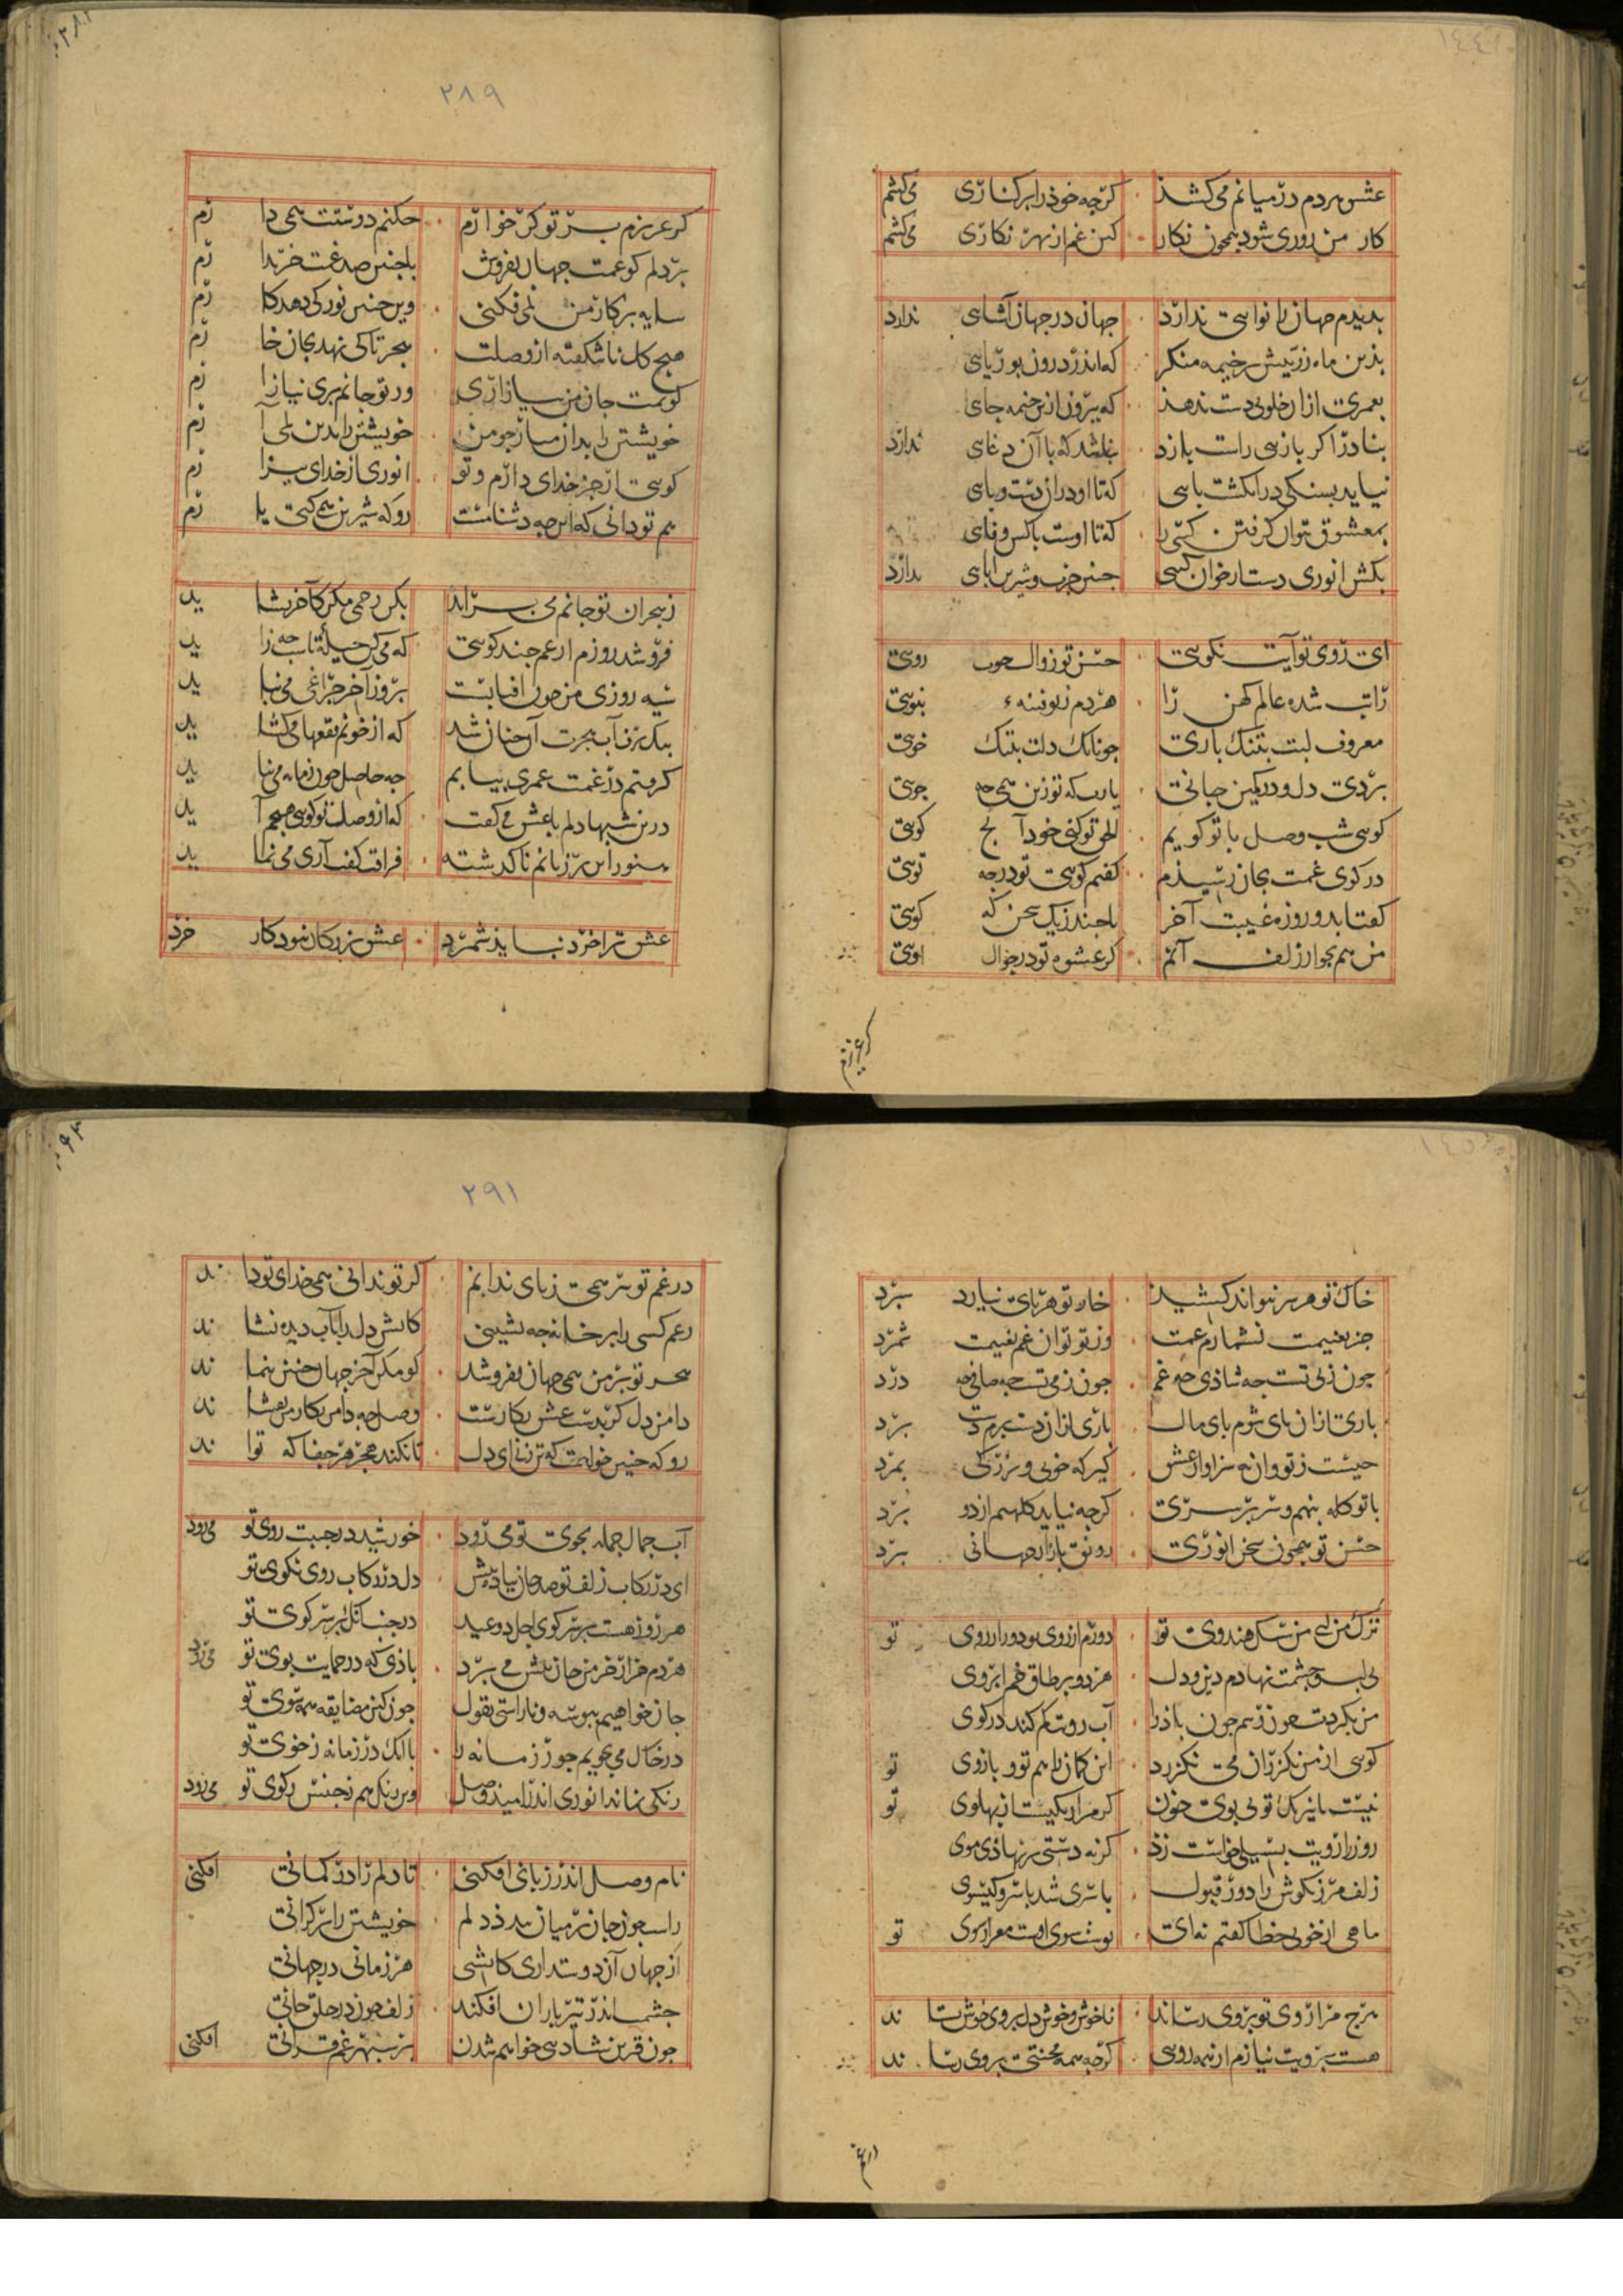 عشق هردم در میانم می کشد · کرچه خود را بر کناری می کشم
کار من روزی شود همچون نکار · کین غم از بهر نکاری می کشم
بدیدم جهان را نوایی ندارد · جهان در جهان آشنایی ندارد
بدین ماه زرینش در خیمه منکر · که اندر درون بوریایی
بعمری از ان خلوتی دست ندهد · که بیرون ازین خیمه جایی
بنادر اکر بازیی راست بازد · نباشد که با آن دغایی ندارد
نیاید بسنکی در انکشت پایی · که تا او دراز دست و پایی
بمعشوق نتوان کرفتن کسی را · که تا اوست با کس وفایی
بکش انوری دست از خوان کیتی · چنین چرب و شیرین ابایی ندارد
ای روی تو آیت نکویی · حسن تو زوال خوب رویی
راتب شده عالم کهن را · هردم ز تو فتنهء بنویی
معروف لبت بتنک باری · چونانک دلت بتنک خویی
بردی دل و در کمین جانی · یارب که تو زین همه چه جویی
کویی شب وصل با تو کویم · الحق تو کنی خود آنچ کویی
در کوی غمت بجان رسیدم · کفتم کویی تو در چه تویی
کفتا بدو روزه غیبت آخر · با چند زیک سخن که کویی
من هم بجوار زلف آنم · کز عشوه تو در جوال اویی
کر عزیزم
۲۸۹
کر عزیزم بر تو کر خوارم · چکنم دوستت همی دارم
بر دلم کو غمت جهان بفروش · با چنین صد غمت خریدارم
سایه بر کار من نمی فکنی · وین چنین نور کی دهد کارم
هیچ کل ناشکفته از وصلت · هجر تا کی نهد بجان خارم
کویمت جان من میازاری · ور تو جانم بری نیازارم
خویشتن را بدان میار چو من · خویشتن را بدین نمی آرم
کویی از جز خدای دارم و تو · انوری از خدای بیزارم
هم تو دانی که این چه دشنامست · رو که شیرین همی کنی یارم
ز هجران تو جانم می برآید · بکن رحمی مکن کآخر بشاید
فرو شد روزم از غم چند کویی · که می کن حیله تا شب چه زاید
سیه روزی من چون آفتابست · بروز آخر چراغی می نباید
سبک تر ز آب هجرت آن چنان شد · که از خونم فقعها می کشاید
کرفتم در غمت عمری بپایم · چه حاصل چون زمانه می نپاید
درین شبها دلم با عشق می کفت · که از وصلت تو کویی هیچم آید
هنوز این بر زبانم ناکذشته · فراقت کفت آری می نماید
عشق ترا خرد نباید شمرد · عشق بزرکان نبود کار خرد
خاک تو هر سر نتواند کشید · خار تو هر پای نیارد سپرد
جز بغنیمت نشمارم غمت · وز تو توان غم بغنیمت شمرد
چون ز پی تست چه شاذی چه غم · چون ز می تست چه صافی چه درد
باری ازان پای شوم پای مال · باری ازان دست برم دست برد
نیست ز تو وانه سزاوار عشق · کیر که خوبی و بزرکی بمرد
با تو کله بنهم و سر بر سری · کرچه نیاید کلهم از دو برد
حسن تو همچون سخن انوری · رونق بازار جهانی ببرد
ترک من ای من سک هندوی تو · دورم از روی تو دور از روی تو
بر لب و چشمت نهادم دین و دل · هر دو بر طاق خم ابروی
من بکردت چون رسم چون باذ را · آب روت کم کند در کوی
کویی از من بکذران می نکذرد · این کمان را هم تو و بازوی تو
نیست با نیرنک تو بی بوی خون · کر مرا رنکیست از پهلوی تو
روز را رویت بسیلی خواست زد · کر نه دستی بر نهاذی موی
زلف مرزنکوش را دور قبول · با سری شد با سر و کیسوی
ماهی از خوبی خطا کفتم نه ای · نوش سوی اوست معراز سوی تو
هرچ مرا روی تو بروی رساند · ناخوش و خوش دل بروی خوش ستاند
هست برویت نیازم از همه رویی · کرچه همه محنتی بروی رساند
در غم
۲۹۱
در غم تو سر همی ز پای ندانم · کر تو ندانی همی خدای تو داند
رغم کسی را بر خانه چه نشینی · کاتش دل را بآب دیده نشاند
هجر تو بر من همی جهان بفروشد · کو مکن آخر جهان چنین بنماند
دامن دل کر بدست عشق بکارست · وصل چه دامن بکار من بفشاند
رو که چنین خواهمت که تن زن ای دل · تا بکند هجر هر جفا که تواند
آب جمال جمله بجوی تو می رود · خورشید در جنیبت روی تو می رود
ای در رکاب زلف تو صد جان پیاده بیش · دل در رکاب روی نکوی تو
هر روز هست بر سر کوی اجل دو عید · در جنب آنک بر سر کوی تو
هردم هزار خرمن جان بیش می برد · باذی که در حمایت بوی تو می رود
جان خواهیم ببوسه و نا راستی بقول · چون کنم مضایقه همه سوی تو
در خاک می بجویم جور زمانه را · با آنک در زمانه ز خوی تو
رنکی نماند انوری اندر امید وصل · وین رنک هم ز جنس رکوی تو می رود
نام وصل اندر زبانی افکنی · تا دلم را در کمانی افکنی
راست چون جان بر میان بندد دلم · خویشتن را بر کرانی
از جهان آن دوستداری کاشتی · هر زمانی در جهانی
چشم اندر تیر باران افکند · زلف چون در حلق جانی
چون قرین شادیی خواهم شدن · بر سپهر غم قرانی افکنی